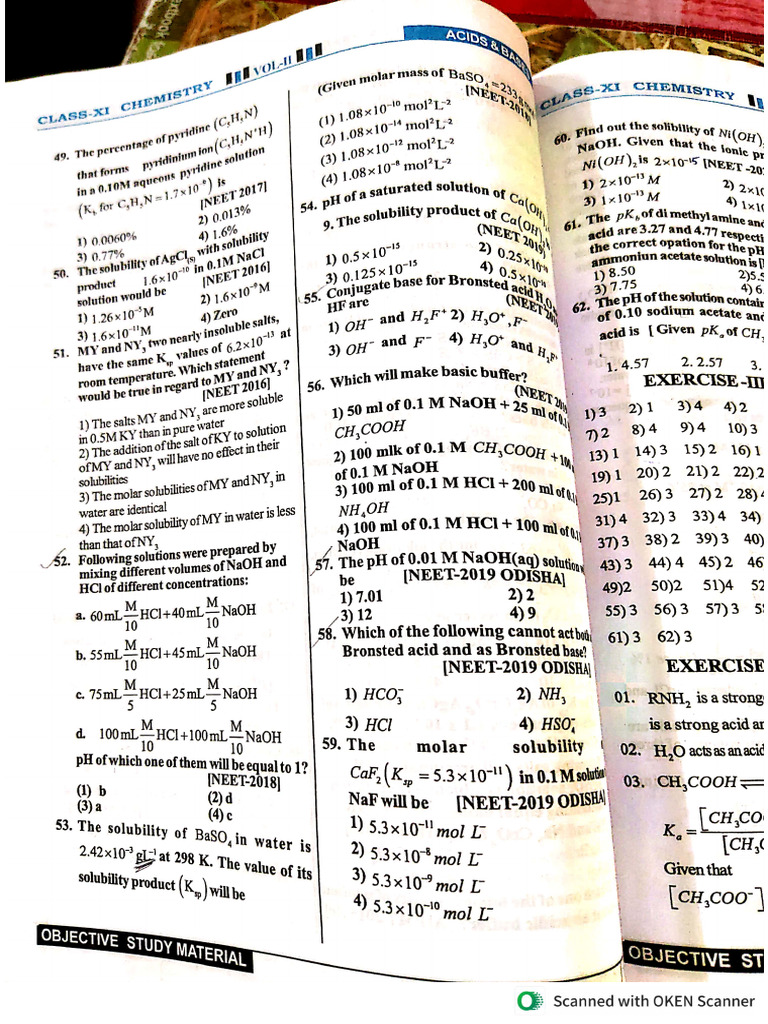 CLASS-XI CHEMISTRY VOL-II
49. The percentage of pyridine (C₅H₅N)
that forms pyridinium ion (C₅H₅N⁺H)
in a 0.10M aqueous pyridine solution
(K_b for C₅H₅N = 1.7×10⁻⁹) is
[NEET 2017]
1) 0.0060% 2) 0.013%
3) 0.77% 4) 1.6%
50. The solubility of AgCl₍s₎ with solubility
product 1.6×10⁻¹⁰ in 0.1M NaCl
solution would be [NEET 2016]
1) 1.26×10⁻⁵M 2) 1.6×10⁻⁹M
3) 1.6×10⁻¹¹M 4) Zero
51. MY and NY₃ two nearly insoluble salts,
have the same K_sp values of 6.2×10⁻¹³ at
room temperature. Which statement
would be true in regard to MY and NY₃?
[NEET 2016]
1) The salts MY and NY₃ are more soluble
in 0.5M KY than in pure water
2) The addition of the salt of KY to solution
of MY and NY₃ will have no effect in their
solubilities
3) The molar solubilities of MY and NY₃ in
water are identical
4) The molar solubility of MY in water is less
than that of NY₃
52. Following solutions were prepared by
mixing different volumes of NaOH and
HCl of different concentrations:
a. 60mL M/10 HCl+40mL M/10 NaOH
b. 55mL M/10 HCl+45mL M/10 NaOH
c. 75mL M/5 HCl+25mL M/5 NaOH
d. 100mL M/10 HCl+100mL M/10 NaOH
pH of which one of them will be equal to 1?
[NEET-2018]
(1) b (2) d
(3) a (4) c
53. The solubility of BaSO₄ in water is
2.42×10⁻³ gL⁻¹ at 298 K. The value of its
solubility product (K_sp) will be
OBJECTIVE STUDY MATERIAL
ACIDS & BASES
(Given molar mass of BaSO₄=233
[NEET-2018]
(1) 1.08×10⁻¹⁰ mol²L⁻²
(2) 1.08×10⁻¹⁴ mol²L⁻²
(3) 1.08×10⁻¹² mol²L⁻²
(4) 1.08×10⁻⁸ mol²L⁻²
54. pH of a saturated solution of Ca(OH)
9. The solubility product of Ca(OH)
(NEET 2019)
1) 0.5×10⁻¹⁵ 2) 0.25×10
3) 0.125×10⁻¹⁵ 4) 0.5×10
55. Conjugate base for Bronsted acid H₂O
HF are (NEET 20
1) OH⁻ and H₂F⁺ 2) H₃O⁺, F⁻
3) OH⁻ and F⁻ 4) H₃O⁺ and H₂F
56. Which will make basic buffer?
(NEET 20
1) 50 ml of 0.1 M NaOH + 25 ml of 0.1
CH₃COOH
2) 100 mlk of 0.1 M CH₃COOH + 100
of 0.1 M NaOH
3) 100 ml of 0.1 M HCl + 200 ml of 0.1
NH₄OH
4) 100 ml of 0.1 M HCl + 100 ml of 0.1
NaOH
57. The pH of 0.01 M NaOH(aq) solution
be [NEET-2019 ODISHA]
1) 7.01 2) 2
3) 12 4) 9
58. Which of the following cannot act both
Bronsted acid and as Bronsted base?
[NEET-2019 ODISHA]
1) HCO₃⁻ 2) NH₃
3) HCl 4) HSO₄⁻
59. The molar solubility
CaF₂(K_sp = 5.3×10⁻¹¹) in 0.1M solution
NaF will be [NEET-2019 ODISHA]
1) 5.3×10⁻¹¹ mol L⁻
2) 5.3×10⁻⁸ mol L⁻
3) 5.3×10⁻⁹ mol L⁻
4) 5.3×10⁻¹⁰ mol L⁻
CLASS-XI CHEMISTRY
60. Find out the solibility of Ni(OH)
NaOH. Given that the ionic pr
Ni(OH)₂ is 2×10⁻¹⁵ [NEET -20
1) 2×10⁻¹³ M 2) 2×1
3) 1×10⁻¹³ M 4) 1×10
61. The pK_b of di methyl amine and
acid are 3.27 and 4.77 respecti
the correct opation for the pH
ammoniun acetate solution is [
1) 8.50 2)5.5
3) 7.75 4) 6.
62. The pH of the solution contain
of 0.10 sodium acetate and
acid is [ Given pK_a of CH
1. 4.57 2. 2.57 3.
EXERCISE-III
1) 3 2) 1 3) 4 4) 2
7) 2 8) 4 9) 4 10) 3
13) 1 14) 3 15) 2 16) 1
19) 1 20) 2 21) 2 22) 2
25)1 26) 3 27) 2 28)
31) 4 32) 3 33) 4 34)
37) 3 38) 2 39) 3 40)
43) 3 44) 4 45) 2 46
49)2 50)2 51)4 52
55) 3 56) 3 57) 3 5
61) 3 62) 3
EXERCISE
01. RNH₂ is a strong
is a strong acid an
02. H₂O acts as an acid
03. CH₃COOH ⇌
K_a = [CH₃CO / [CH₃C
Given that
[CH₃COO⁻]
OBJECTIVE ST
Scanned with OKEN Scanner